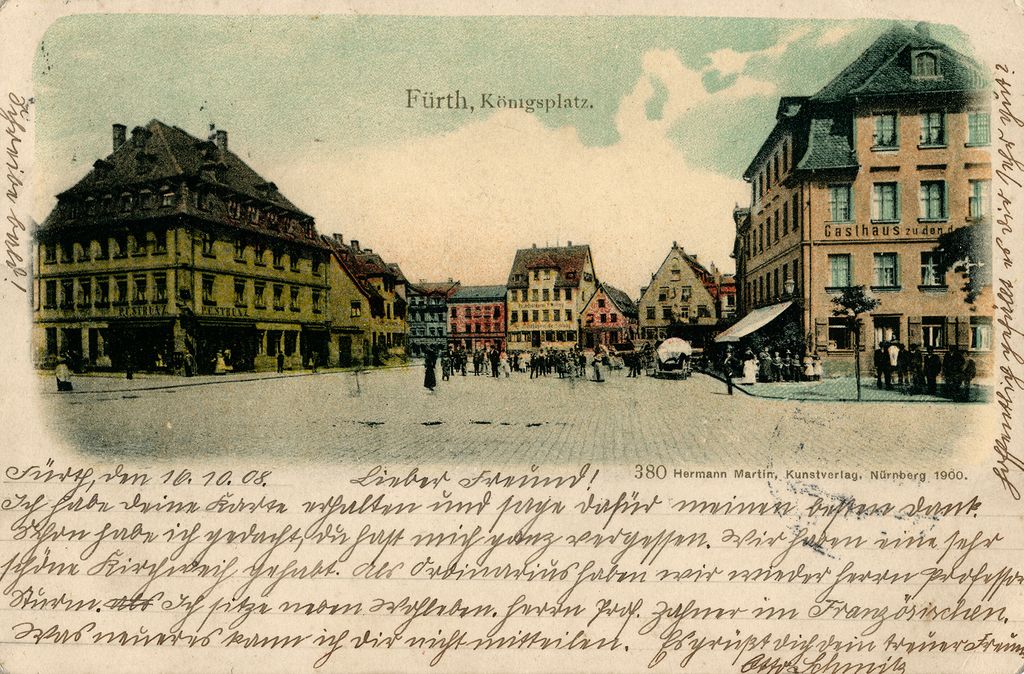 Fürth, Königsplatz.
P. STRUNZ
P. STRUNZ
Gasthaus zu den d
380 Hermann Martin, Kunstverlag, Nürnberg 1900.
Fürth, den 16. 10. 08. Lieber Freund!
Ich habe deine Karte erhalten und sage dafür meinen besten Dank.
Schon habe ich gedacht, du hast mich ganz vergessen. Wir haben eine sehr
schöne Kirchweih gehabt. Als Ordinarius haben wir wieder Herrn Professor
Sturm. Ich sitze neben Wohleben. Herrn Prof. Zahner im Französischen.
Was neueres kann ich dir nicht mitteilen. Es grüßt dich dein treuer Freund
Otto Schmitz
Schreibe bald!
Hoffentlich gefällt es dir sehr gut?